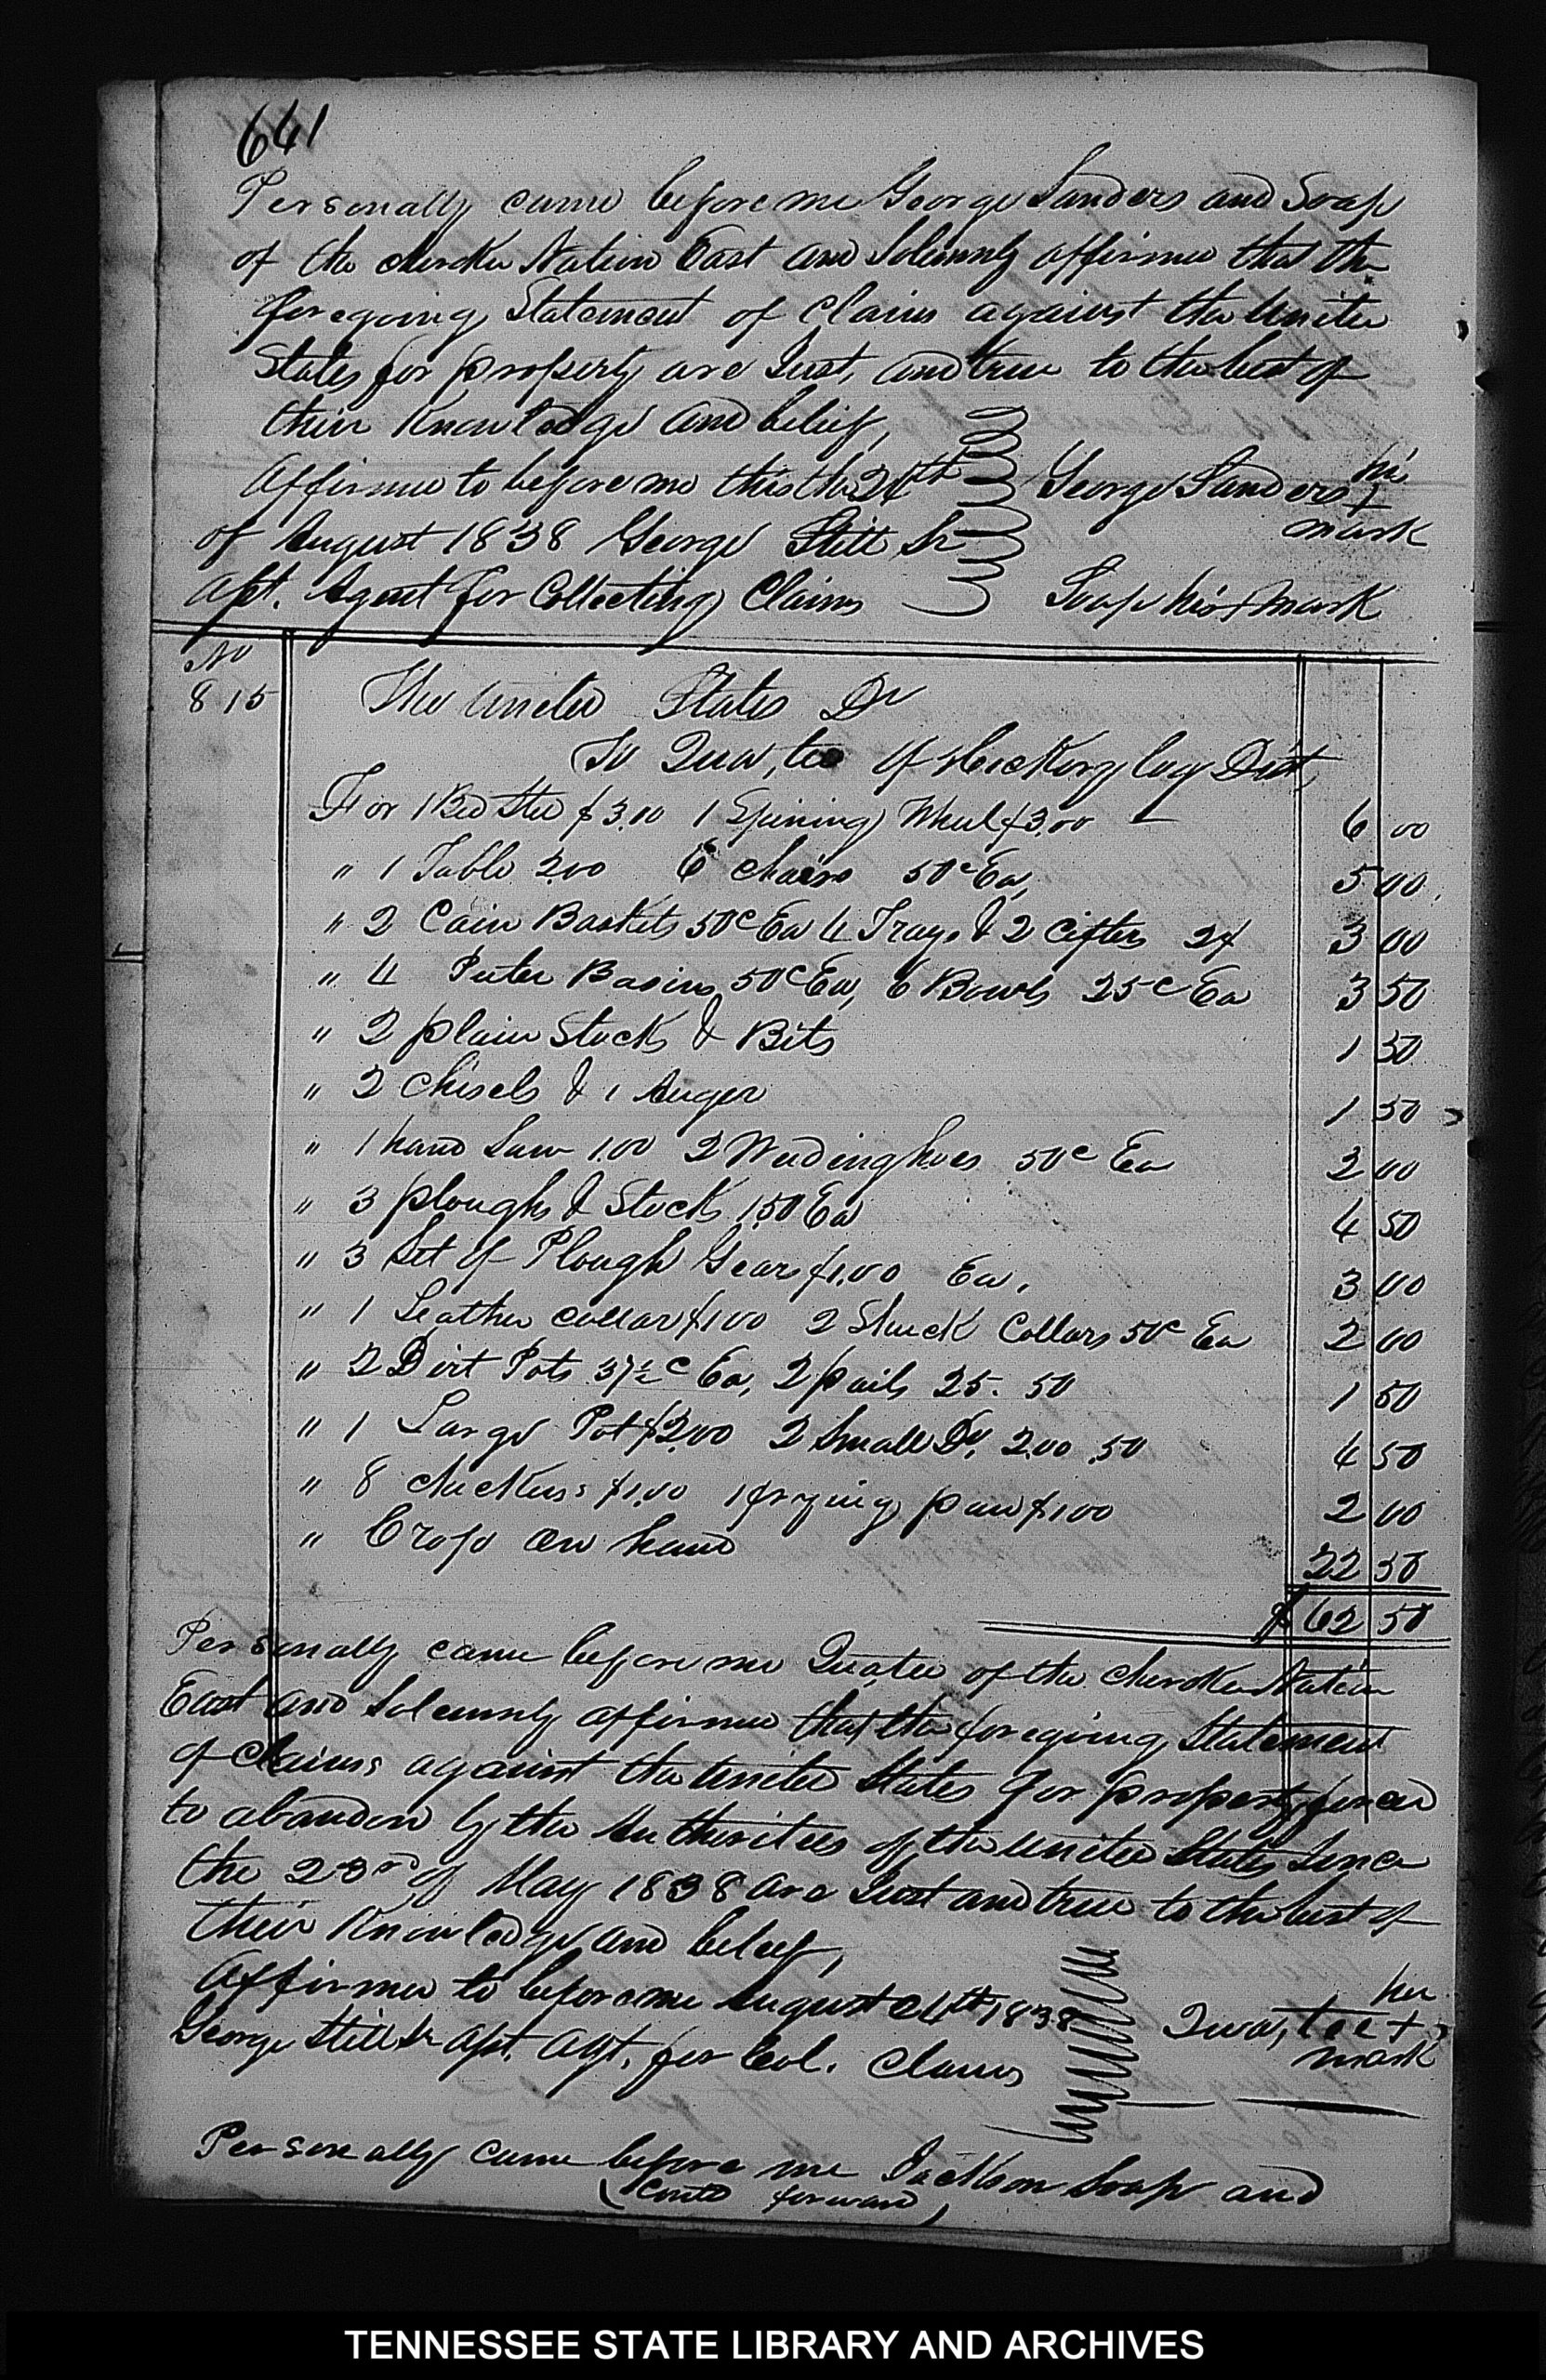 641
Personally came before me George Sanders and Soap
of the cherokee Nation East and Solemnly affirmed that the
foregoing Statement of Claims against the United
States for property are Just, and true to the best of
their Knowledge and belief,
Affirmed to before me this the 24th George Sanders his x mark
of August 1838 George Still Sr
Apt. Agent for Collecting Claims Soap his x mark
No
815 The United States Dr
To Qua,tee of Hickory log Dist,
For 1 Bed Sted $3.00 1 Spining Wheel $3.00 6 00
" 1 Table 2.00 6 chairs 50c Ea, 5 00
" 2 Cain Baskets 50c Ea 4 Trays & 2 Cifters 2$ 3 00
" 4 Puter Basins 50c Ea, 6 Bowls 25c Ea 3 50
" 2 plain Stocks & Bits 1 50
" 2 chisels & 1 Auger 1 50
" 1 hand Saw 1.00 2 Weedinghoes 50c Ea 2 00
" 3 ploughs & Stocks 1.50 Ea 4 50
" 3 Set of Plough Gears $1.00 Ea, 3 00
" 1 Leather collar $1.00 2 Shuck Collars 50c Ea 2 00
" 2 Dirt Pots 37½c Ea, 2 pails 25. 50 1 50
" 1 Large Pot $2.00 2 Small Do, 2.00 .50 4 50
" 8 chickens $1.00 1 frying pan $1.00 2 00
" Crop on hand 22 50
$ 62 50
Personally came before me Quatee of the cherokee Nation
East and Solemnly affirmed that the foregoing Statement
of Claims against the United States for property forced
to abandon by the Authorities of the United States Since
the 23rd of May 1838 are Just and true to the best of
their Knowledge and beleef,
Affirmed to before me August 24th 1838 Qua,tee her x mark
George Still Sr Apt. Agt. for Col. Claims
Personally came before me Jackson Soap and
(Contd forward)
TENNESSEE STATE LIBRARY AND ARCHIVES